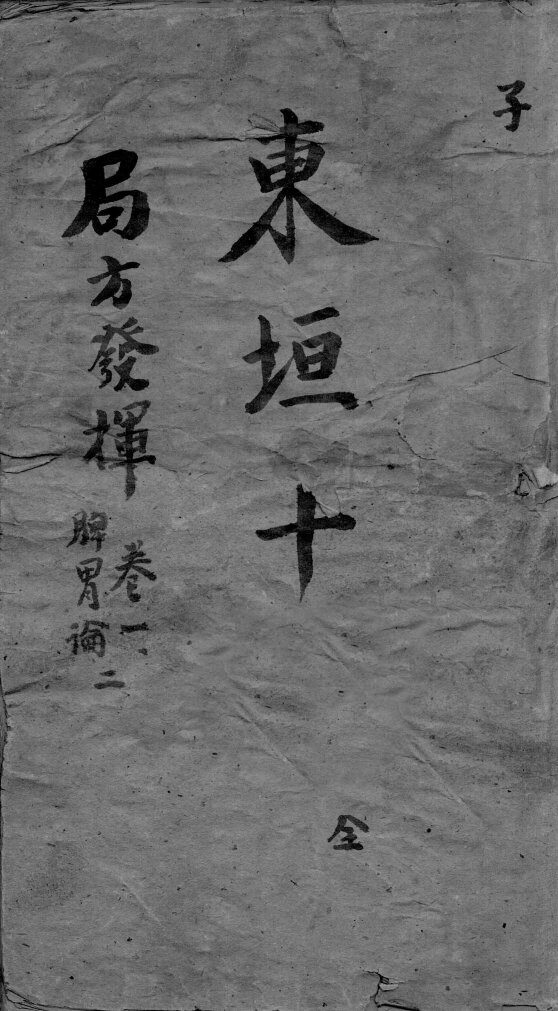 子
東垣十
全
局方發揮
卷一
脾胃論
二